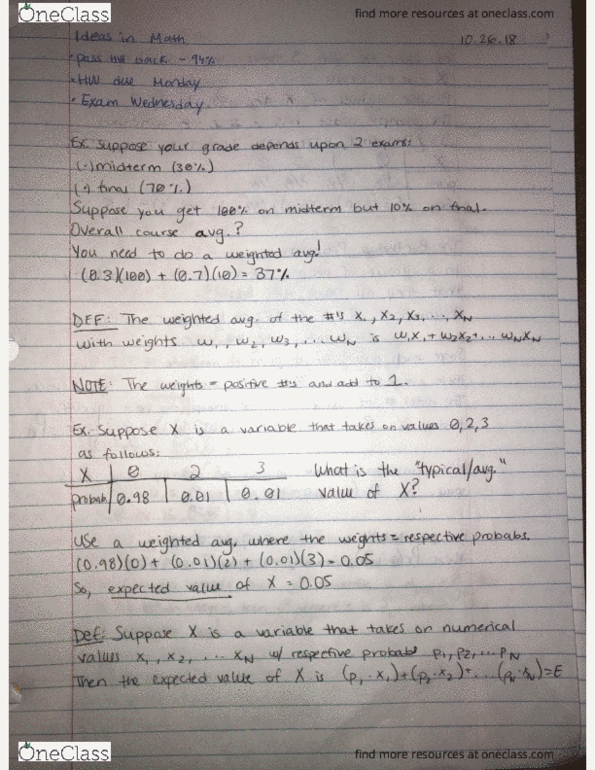 OneClass
find more resources at oneclass.com
Ideas in Math 10.26.18
· pass HW back - 94%
· HW due Monday
· Exam Wednesday
Ex. Suppose your grade depends upon 2 exams:
(-) midterm (30%)
(-) final (70%)
Suppose you get 100% on midterm but 10% on final.
Overall course avg.?
You need to do a weighted avg!
(0.3)(100) + (0.7)(10) = 37%
DEF: The weighted avg. of the #'s X₁, X₂, X₃, ..., X_N
with weights w₁, w₂, w₃, ... w_N is w₁X₁ + w₂X₂+... w_NX_N
NOTE: The weights = positive #'s and add to 1.
Ex. Suppose X is a variable that takes on values 0,2,3
as follows:
X 0 2 3 What is the "typical/avg."
probab. 0.98 0.01 0.01 value of X?
Use a weighted avg. where the weights = respective probabs.
(0.98)(0) + (0.01)(2) + (0.01)(3) = 0.05
So, expected value of X = 0.05
Def: Suppose X is a variable that takes on numerical
values x₁, x₂, ... x_N w/ respective probabs p₁, p₂, ... p_N
Then the expected value of X is (p₁·x₁)+(p₂·x₂)+...(p_N·x_N)=E
OneClass
find more resources at oneclass.com